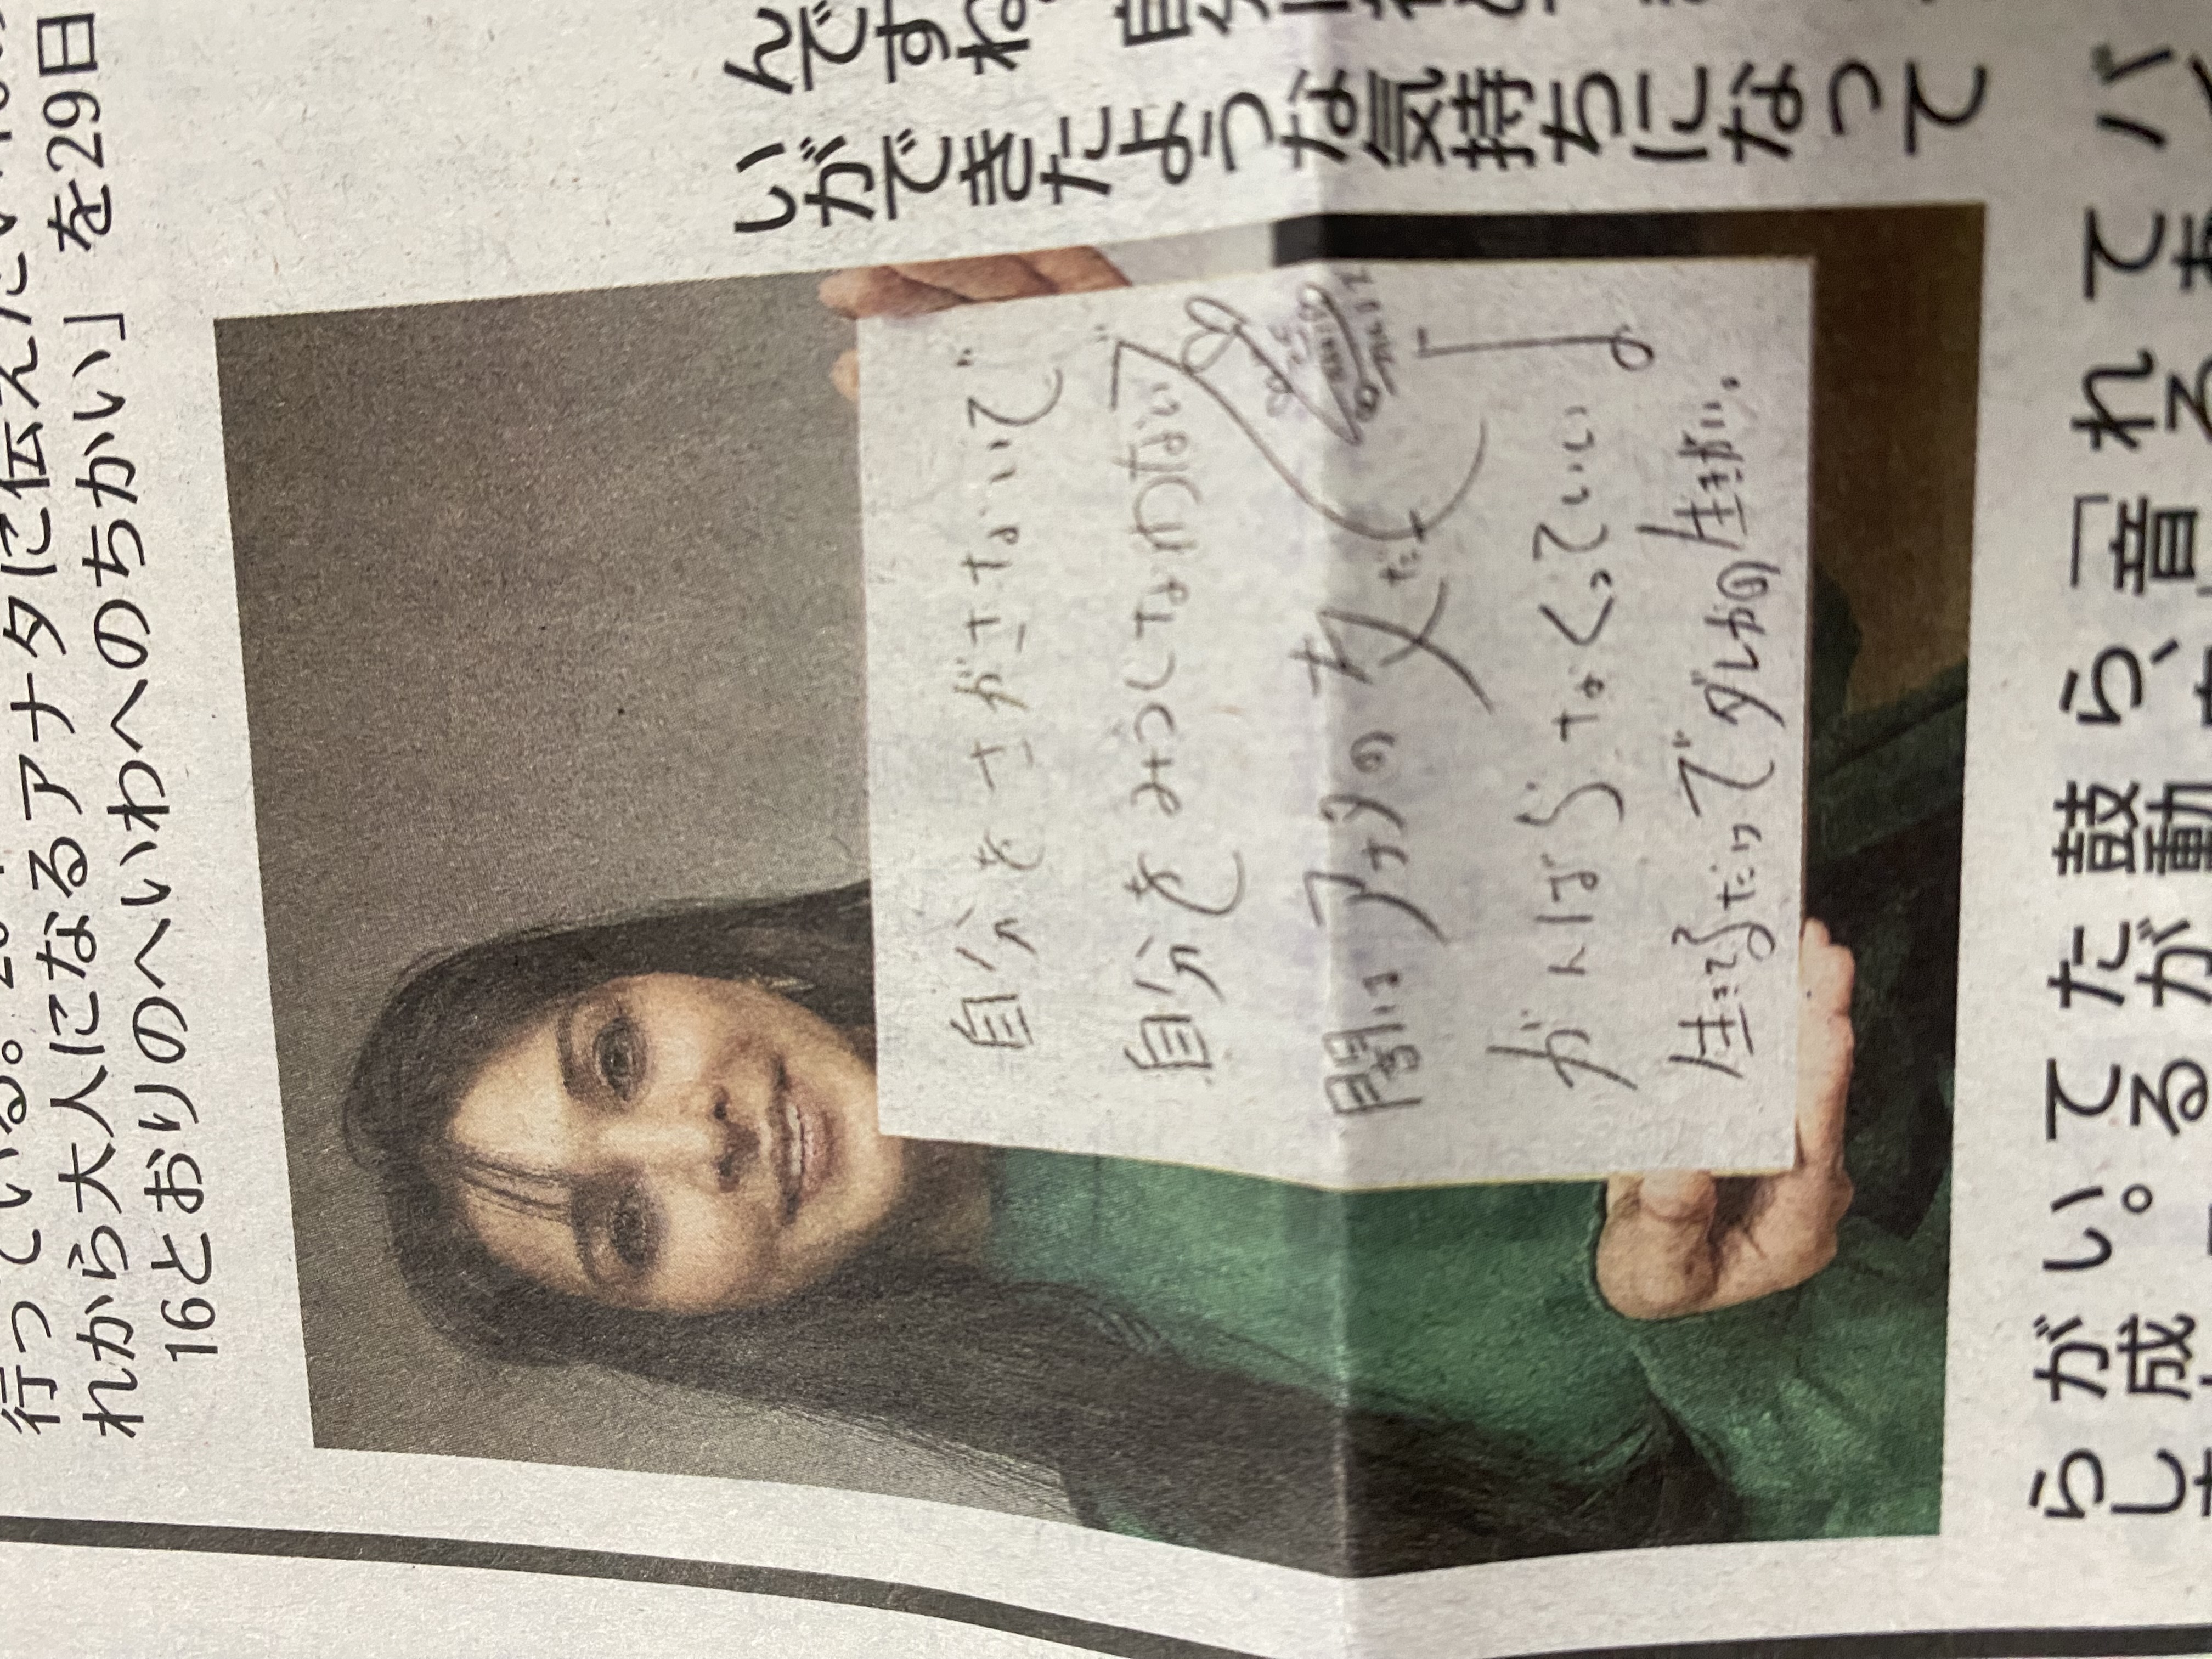 行っている。
れから大人になるアナタに伝えたい
16とおりのへいわへのちかい」を29日
自分をさがさないで
自分をみうしなわないで
闇はアナタの友だち
がんばらなくっていい
生きてるだけでダレカの生きがい。
んですね。
いができたような気持ちになって
バ
てあ
れる
「音
ら、
鼓動
たが
てる
い。
が成
らしま